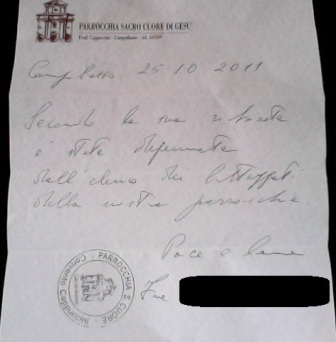 PARROCCHIA SACRO CUORE DI GESÙ
Frati Cappuccini - Campobasso
Campobasso 25.10.2011
Secondo la sua richiesta
è stata depennata
dall'elenco dei battezzati
della nostra parrocchia
Pace e bene
Fra
PARROCCHIA S. CUORE
Convento Cappuccini